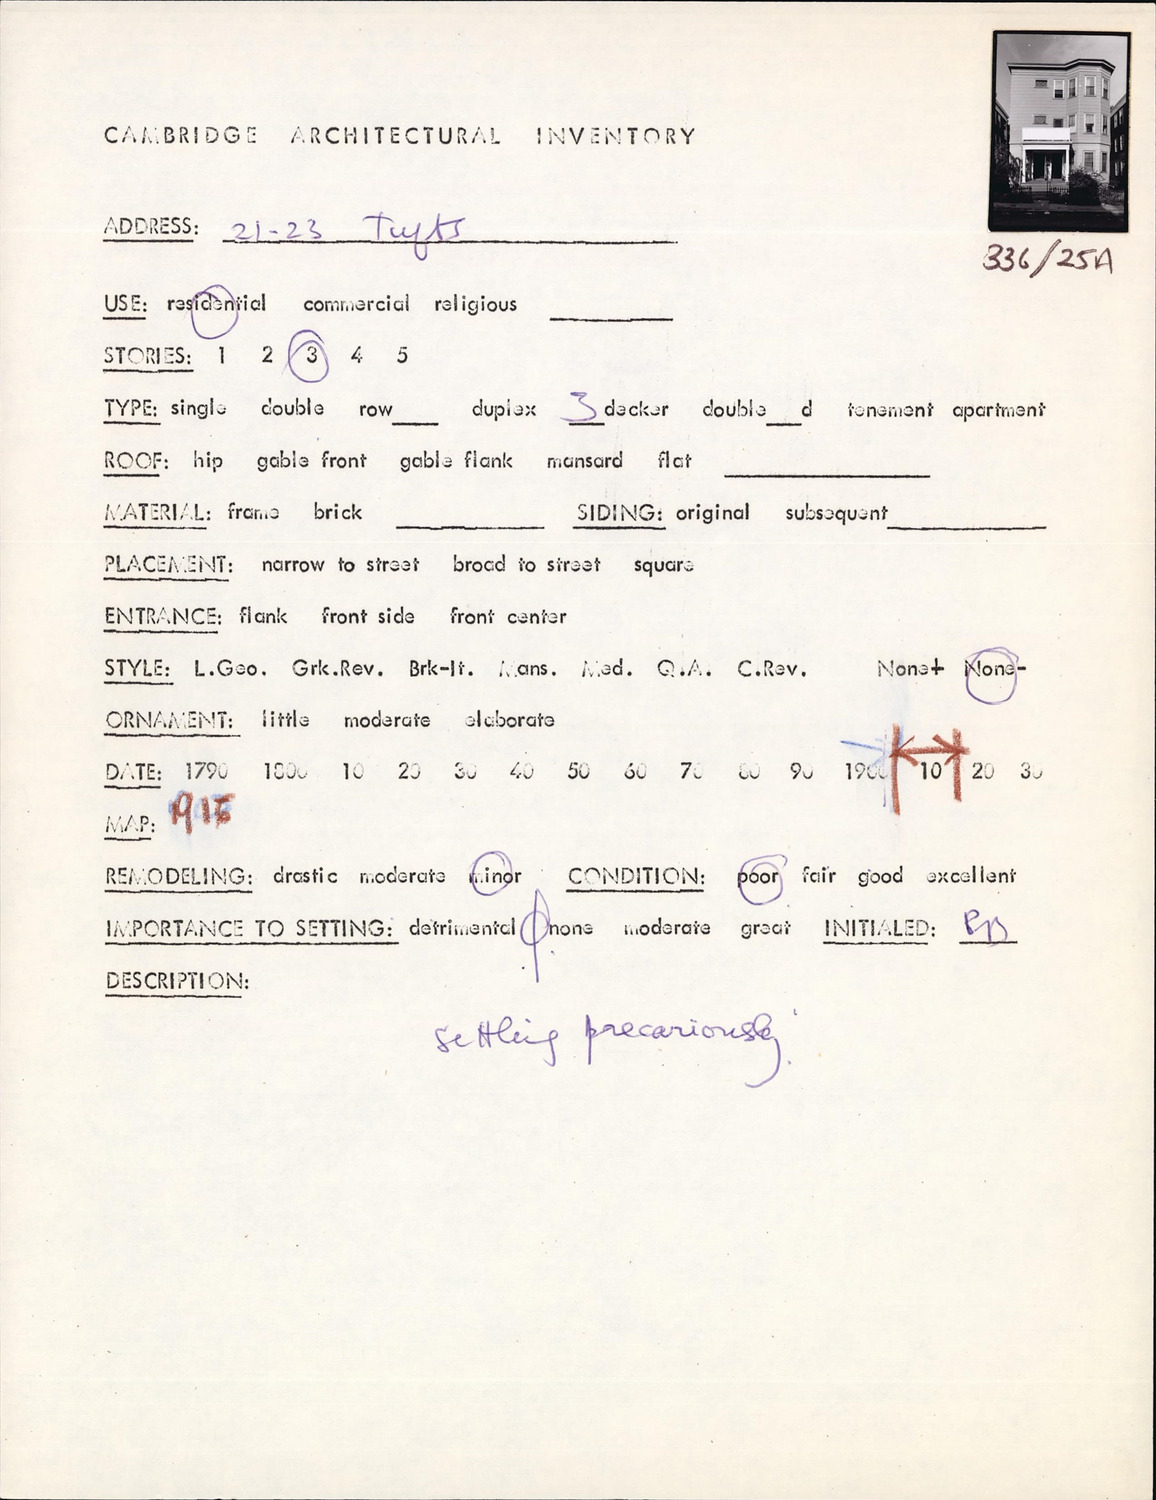 CAMBRIDGE ARCHITECTURAL INVENTORY
336/25A
ADDRESS: 21-23 Tufts
USE: residential commercial religious
STORIES: 1 2 3 4 5
TYPE: single double row___ duplex 3 decker double___d tenement apartment
ROOF: hip gable front gable flank mansard flat
MATERIAL: frame brick SIDING: original subsequent
PLACEMENT: narrow to street broad to street square
ENTRANCE: flank front side front center
STYLE: L.Geo. Grk.Rev. Brk-It. Mans. Med. Q.A. C.Rev. None+ None-
ORNAMENT: little moderate elaborate
DATE: 1790 1800 10 20 30 40 50 60 70 80 90 1900 10 20 30
MAP: 1915
REMODELING: drastic moderate minor CONDITION: poor fair good excellent
IMPORTANCE TO SETTING: detrimental none moderate great INITIALED:
DESCRIPTION:
settling precariously